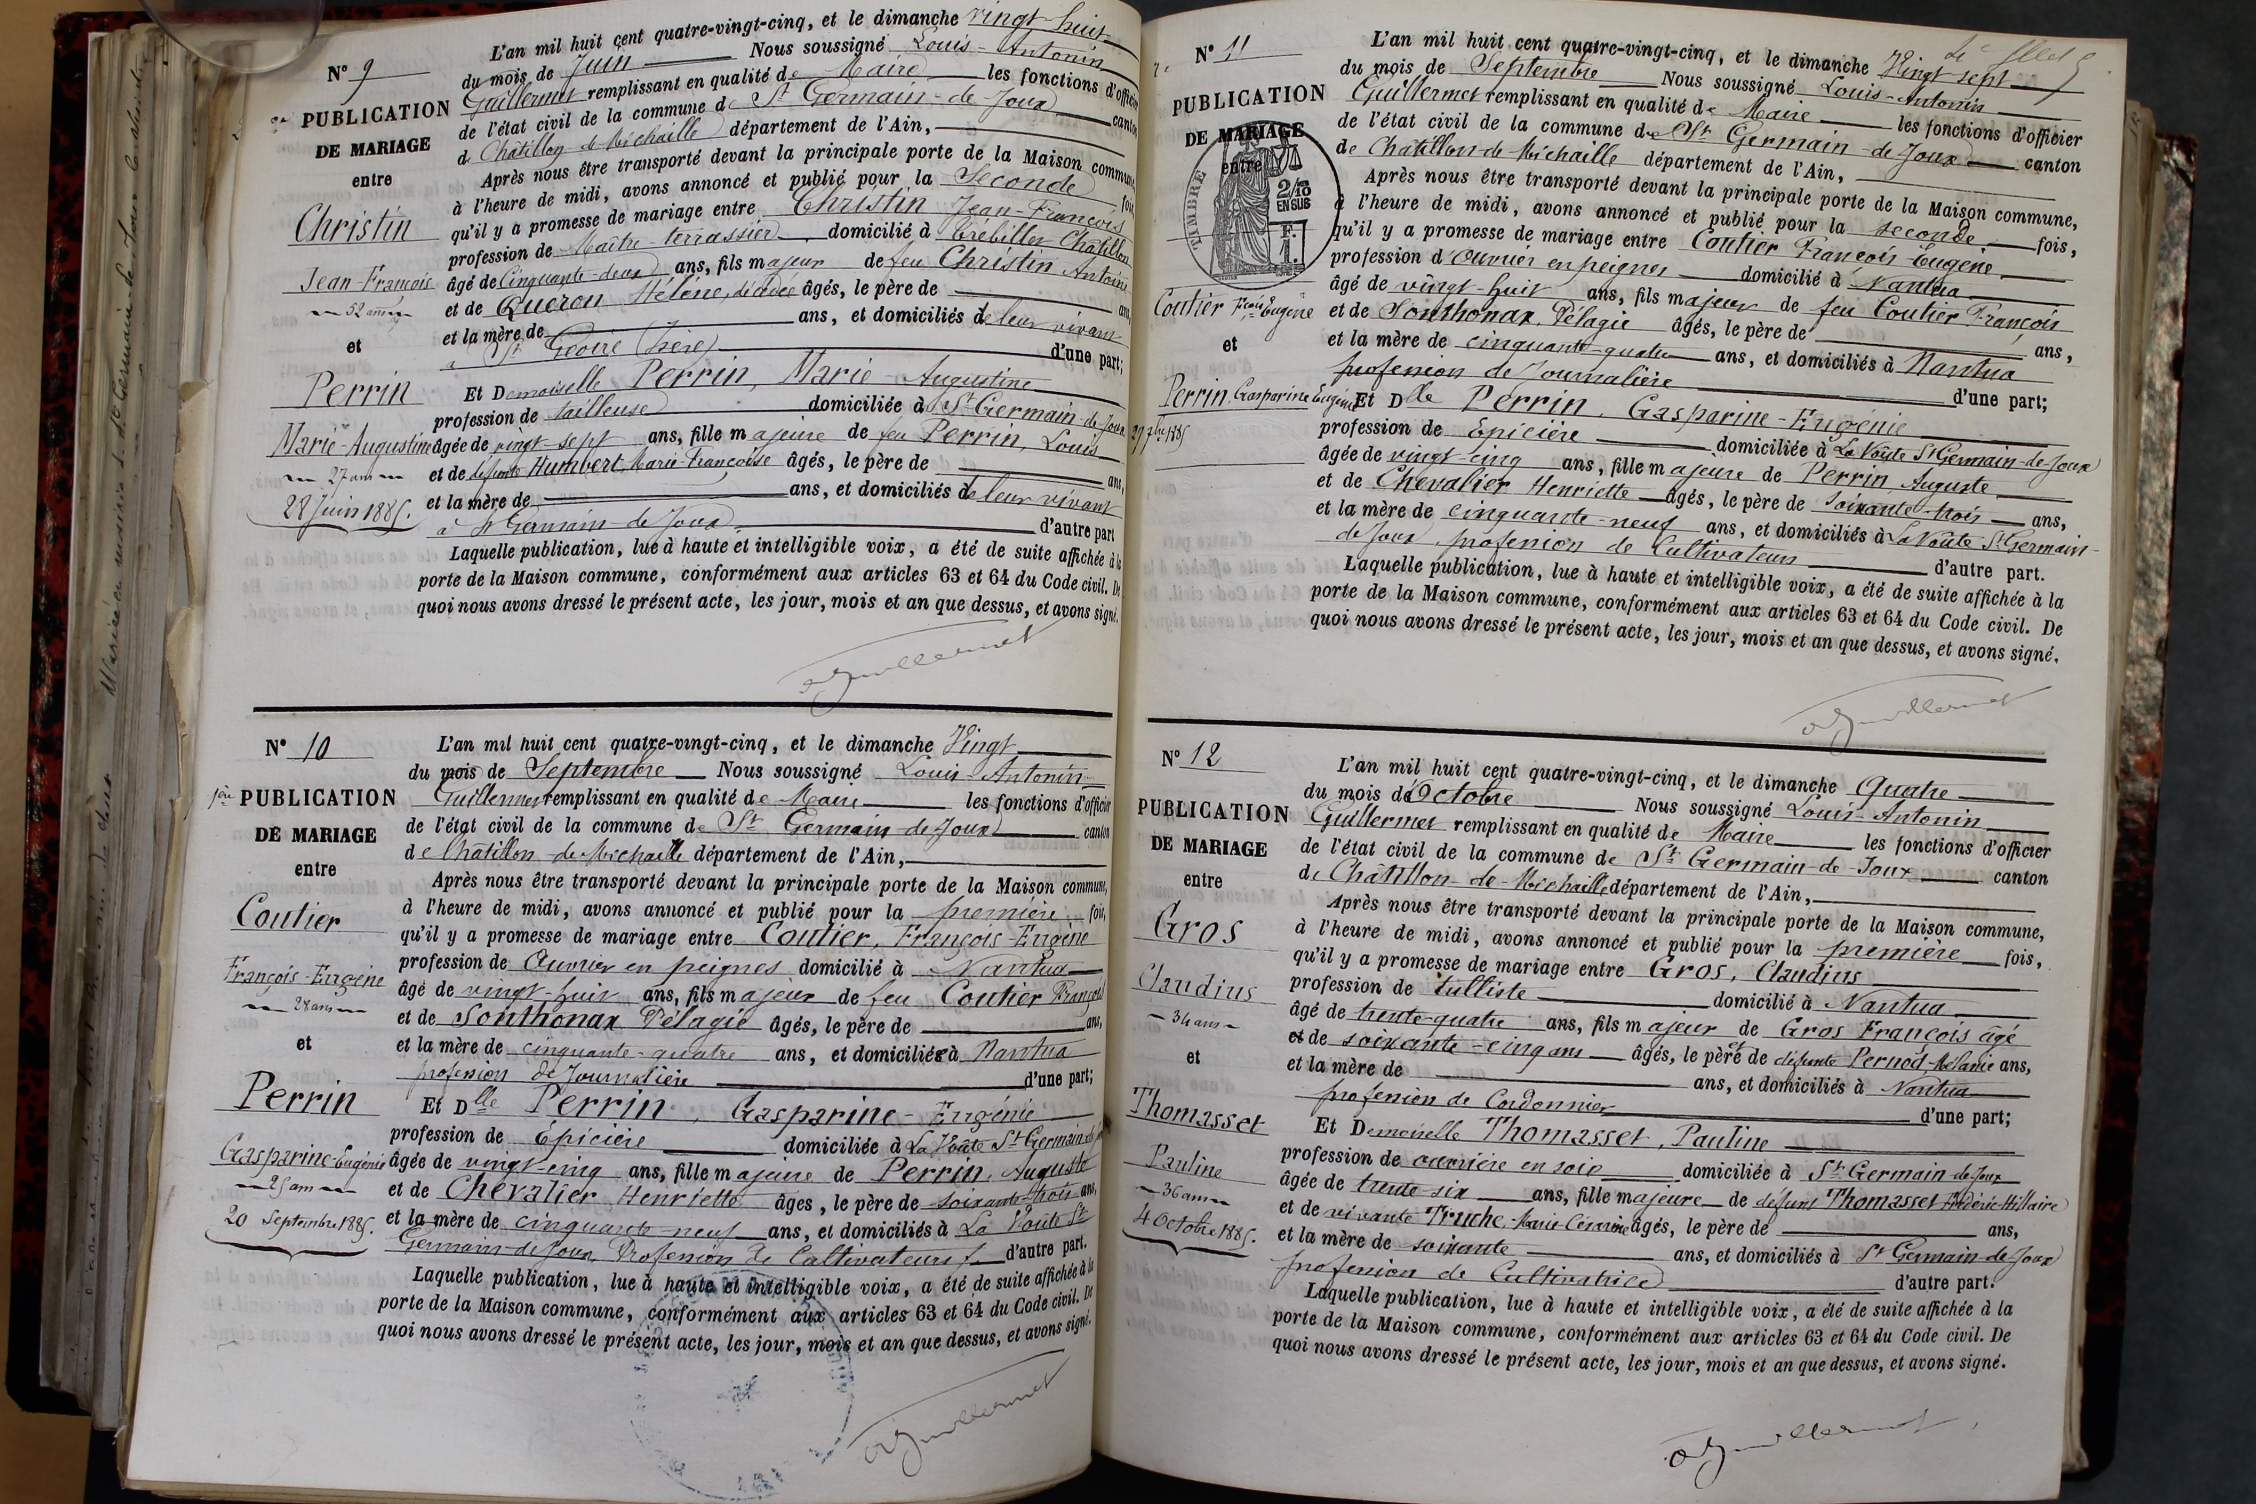 N° 9
2e PUBLICATION
DE MARIAGE
entre
Christin
Jean-François
52 ans
et
Perrin
Marie-Augustine
27 ans
28 Juin 1885.
L'an mil huit cent quatre-vingt-cinq, et le dimanche vingt-huit
du mois de Juin Nous soussigné Louis-Antonin
Guillermet remplissant en qualité de Maire les fonctions d'officier
de l'état civil de la commune de St Germain-de-Joux canton
de Châtillon-de-Michaille département de l'Ain,
Après nous être transporté devant la principale porte de la Maison commune,
à l'heure de midi, avons annoncé et publié pour la Seconde fois,
qu'il y a promesse de mariage entre Christin Jean-François
profession de Maître-terrassier domicilié à Châtillon
âgé de Cinquante-deux ans, fils majeur de feu Christin Antoine
et de Queron Hélène, décédée âgés, le père de ans,
et la mère de ans, et domiciliés de leur vivant
à St Geoire (Isère) d'une part;
Et Demoiselle Perrin, Marie-Augustine
profession de tailleuse domiciliée à St Germain-de-Joux
âgée de vingt-sept ans, fille majeure de feu Perrin, Louis
et de défunte Humbert, Marie-Françoise âgés, le père de ans,
et la mère de ans, et domiciliés de leur vivant
à St Germain de Joux d'autre part
Laquelle publication, lue à haute et intelligible voix, a été de suite affichée à la
porte de la Maison commune, conformément aux articles 63 et 64 du Code civil. De
quoi nous avons dressé le présent acte, les jour, mois et an que dessus, et avons signé.
aGuillermet
N° 10
1ère PUBLICATION
DE MARIAGE
entre
Coutier
François-Eugène
28 ans
et
Perrin
Gasparine-Eugénie
25 ans
20 Septembre 1885.
L'an mil huit cent quatre-vingt-cinq, et le dimanche Vingt
du mois de Septembre Nous soussigné Louis-Antonin
Guillermet remplissant en qualité de Maire les fonctions d'officier
de l'état civil de la commune de St Germain-de-Joux canton
de Châtillon-de-Michaille département de l'Ain,
Après nous être transporté devant la principale porte de la Maison commune,
à l'heure de midi, avons annoncé et publié pour la première fois,
qu'il y a promesse de mariage entre Coutier, François-Eugène
profession de Ouvrier en peignes domicilié à Nantua
âgé de vingt-huit ans, fils majeur de feu Coutier François
et de Sonthonax Pélagie âgés, le père de ans,
et la mère de cinquante-quatre ans, et domiciliés à Nantua
profession de Journalière d'une part;
Et Dlle Perrin, Gasparine-Eugénie
profession de Epicière domiciliée à La Voûte St Germain-de-Joux
âgée de vingt-cinq ans, fille majeure de Perrin, Auguste
et de Chevalier Henriette âgés, le père de soixante-trois ans,
et la mère de cinquante-neuf ans, et domiciliés à La Voûte St
Germain-de-Joux, Profession de Cultivateurs d'autre part.
Laquelle publication, lue à haute et intelligible voix, a été de suite affichée à la
porte de la Maison commune, conformément aux articles 63 et 64 du Code civil. De
quoi nous avons dressé le présent acte, les jour, mois et an que dessus, et avons signé.
aGuillermet
N° 11
PUBLICATION
DE MARIAGE
entre
TIMBRE
2/10
EN SUS
F.
1.
Coutier Fçois-Eugène
et
Perrin, Gasparine Eugénie
27 7bre 1885
L'an mil huit cent quatre-vingt-cinq, et le dimanche Vingt-sept
du mois de Septembre Nous soussigné Louis-Antonin
Guillermet remplissant en qualité de Maire les fonctions d'officier
de l'état civil de la commune de St Germain-de-Joux canton
de Châtillon-de-Michaille département de l'Ain,
Après nous être transporté devant la principale porte de la Maison commune,
à l'heure de midi, avons annoncé et publié pour la seconde fois,
qu'il y a promesse de mariage entre Coutier François Eugène
profession d'Ouvrier en peignes domicilié à Nantua
âgé de vingt-huit ans, fils majeur de feu Coutier François
et de Sonthonax, Pélagie âgés, le père de ans,
et la mère de cinquante-quatre ans, et domiciliés à Nantua
profession de Journalière d'une part;
Et Dlle Perrin, Gasparine-Eugénie
profession de Epicière domiciliée à La Voûte St Germain-de-Joux
âgée de vingt-cinq ans, fille majeure de Perrin Auguste
et de Chevalier Henriette âgés, le père de soixante-trois ans,
et la mère de cinquante-neuf ans, et domiciliés à La Voûte St Germain-
de Joux profession de Cultivateurs d'autre part.
Laquelle publication, lue à haute et intelligible voix, a été de suite affichée à la
porte de la Maison commune, conformément aux articles 63 et 64 du Code civil. De
quoi nous avons dressé le présent acte, les jour, mois et an que dessus, et avons signé.
aGuillermet
N° 12
PUBLICATION
DE MARIAGE
entre
Gros
Claudius
34 ans
et
Thomasset
Pauline
36 ans
4 Octobre 1885.
L'an mil huit cent quatre-vingt-cinq, et le dimanche Quatre
du mois de Octobre Nous soussigné Louis-Antonin
Guillermet remplissant en qualité de Maire les fonctions d'officier
de l'état civil de la commune de St Germain-de-Joux canton
de Châtillon-de-Michaille département de l'Ain,
Après nous être transporté devant la principale porte de la Maison commune,
à l'heure de midi, avons annoncé et publié pour la première fois,
qu'il y a promesse de mariage entre Gros, Claudius
profession de tulliste domicilié à Nantua
âgé de trente-quatre ans, fils majeur de Gros François âgé
et de soixante-cinq ans âgés, le père et de défunte Pernod, Mélanie ans,
et la mère de ans, et domiciliés à Nantua
profession de Cordonnier d'une part;
Et Demoiselle Thomasset, Pauline
profession de ouvrière en soie domiciliée à St Germain-de-Joux
âgée de trente-six ans, fille majeure de défunt Thomasset Frédéric-Hillaire
et de vivante Truche, Marie-Césarine âgés, le père de ans,
et la mère de soixante ans, et domiciliés à St Germain-de-Joux
profession de Cultivatrice d'autre part.
Laquelle publication, lue à haute et intelligible voix, a été de suite affichée à la
porte de la Maison commune, conformément aux articles 63 et 64 du Code civil. De
quoi nous avons dressé le présent acte, les jour, mois et an que dessus, et avons signé.
aGuillermet